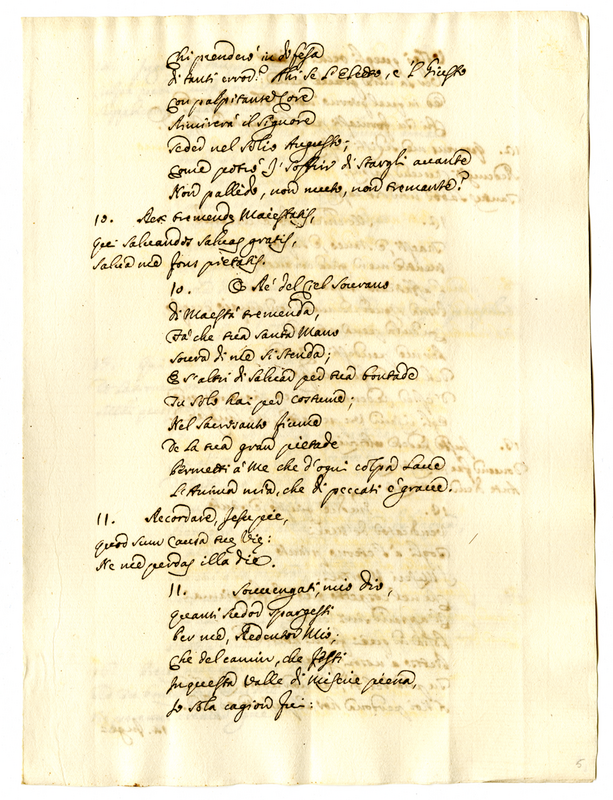 Chi prenderò in difesa
di tanti errori? Ahi se l'Eletto, e 'l Giusto
Con palpitante Core
Rimirerà il Signore
Seder nel Solio Augusto;
Come potrò Io soffrir di stargli avante
Non pallido, non muto, non tremante?
10. Rex tremendę Maiestatis,
qui Saluandos saluas gratis,
Salua me fons pietatis.
10. O Rè del Ciel Sourano
di Maestà tremenda,
Fà che tua santa Mano
Soura di me si stenda;
E s'altri di saluar per tua bontade
Tu solo hai per costume;
Nel sacrosanto fiume
De la tua gran pietade
Permetti à Me che d'ogni colpa Laue
L'Anima mia, che di peccati è graue.
11. Recordare, Jesu pie,
quod sum causa tuę Vię:
Ne me perdas illa die.
11. Souuengati, mio Dio,
quanti sudor spargesti
Per me, Redentor Mio;
Che del camin, che festi
In questa Valle di Miserie piena,
Io sola cagion fui:
5